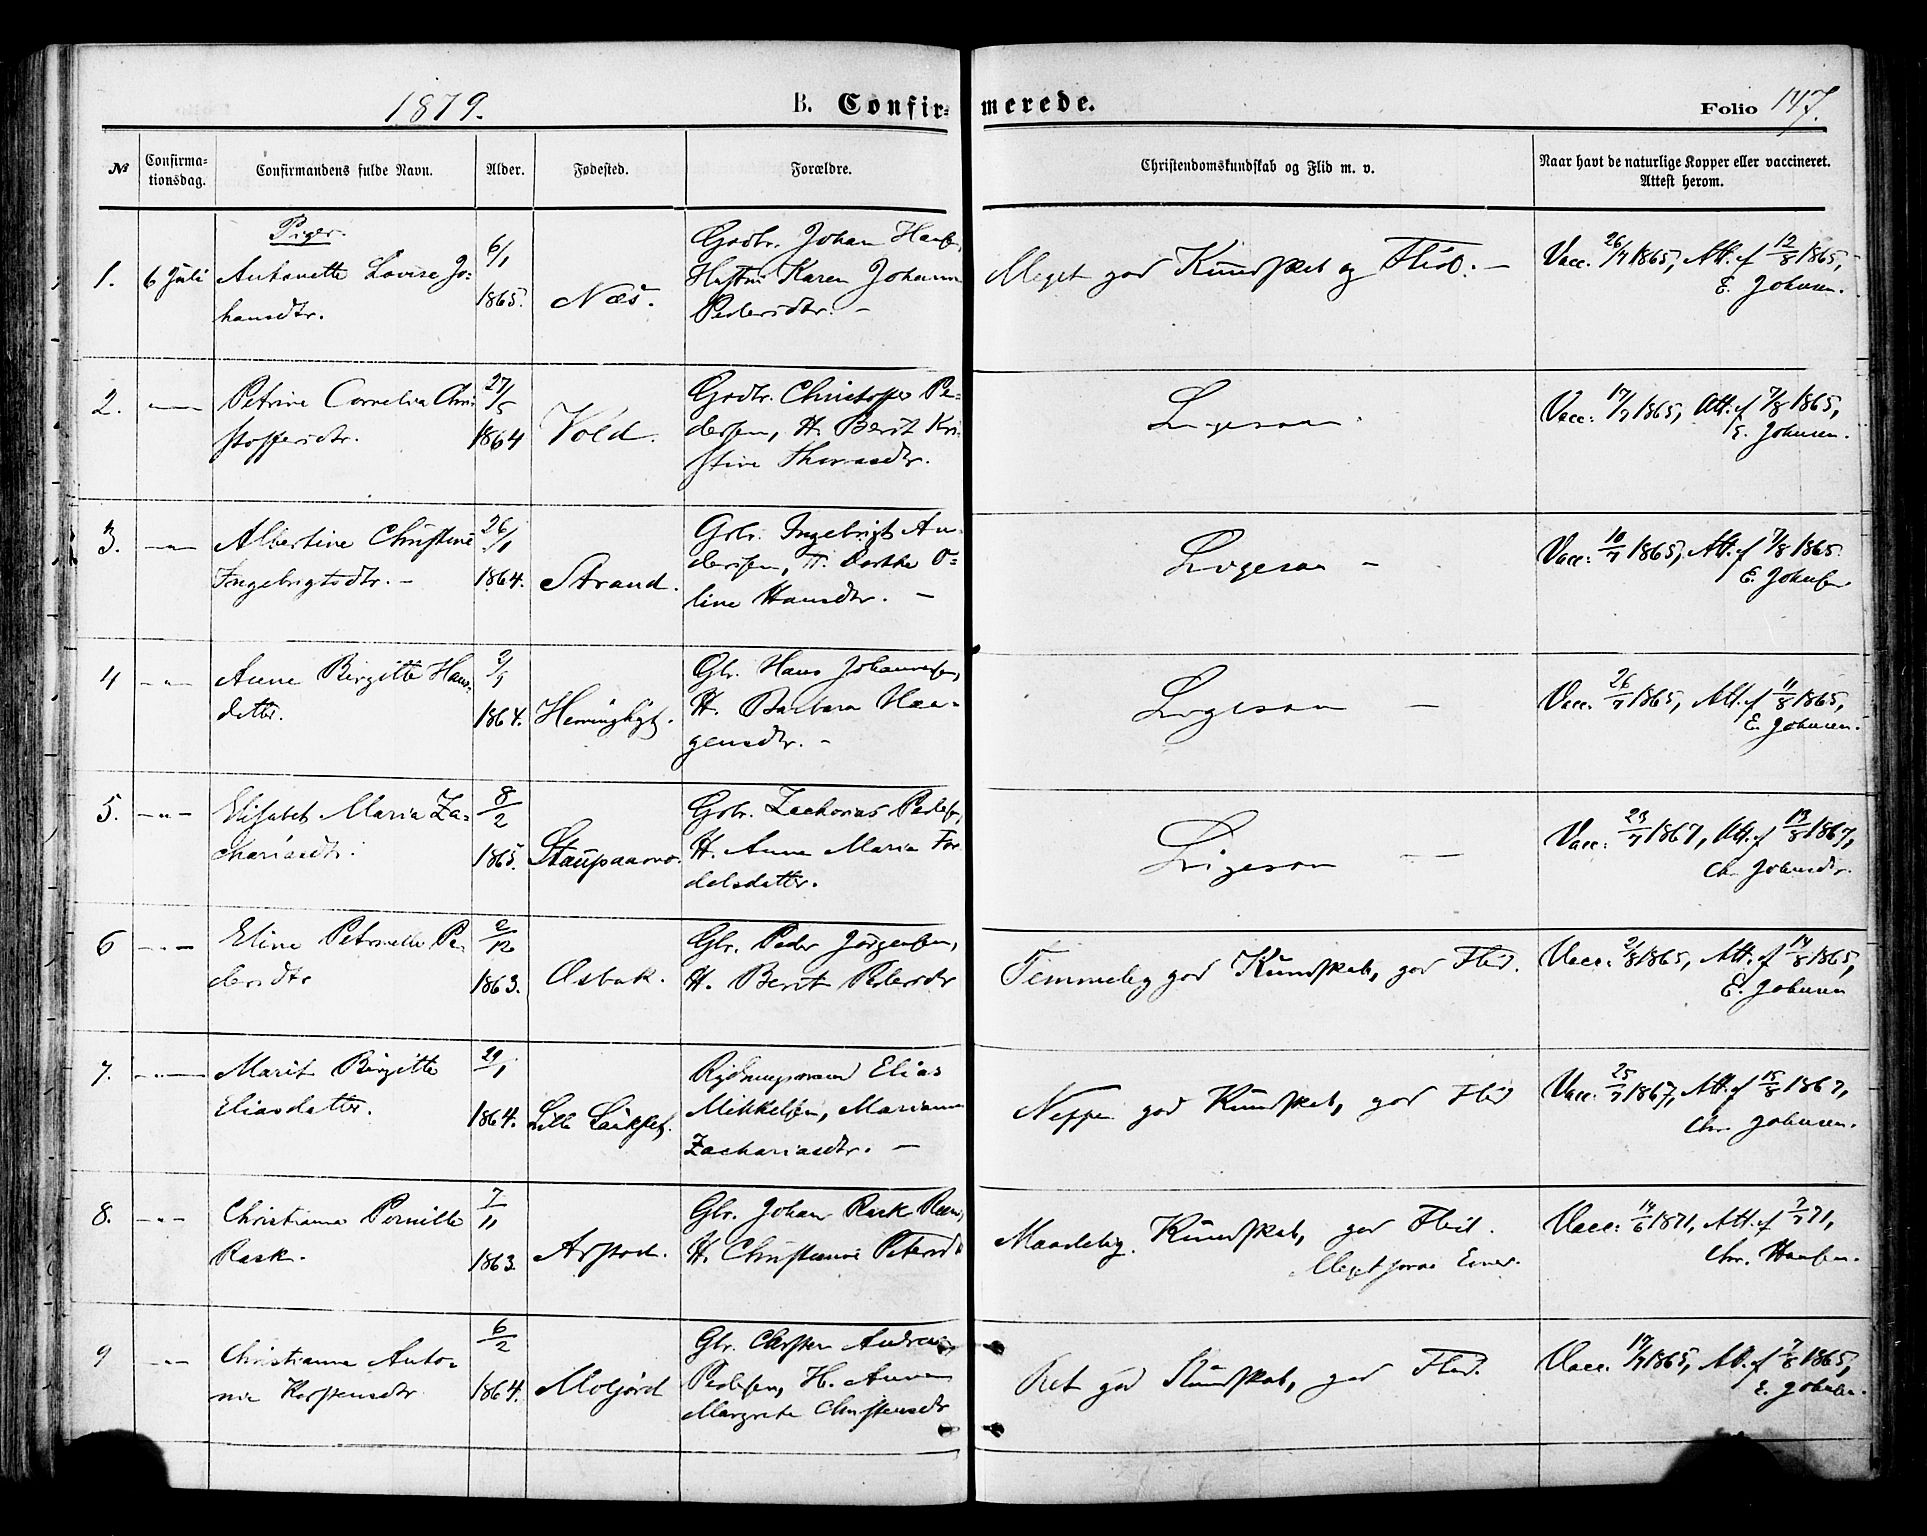 1879.
B. Confirmerede.
Folio 147.
№
Confirmationsdag.
Confirmandens fulde Navn.
Alder.
Fødested.
Forældre.
Christendomskundskab og Flid m. v.
Naar havt de naturlige Kopper eller vaccineret.
Attest herom.
Piger.
1.
6 Juli
Antonette Lovise Jo-
hansdtr.
6/1
1865.
Næs.
Grdbr. Johan Hansen,
Hustru Karen Johanna
Pedersdtr. -
Meget god Kundskab og Flid. -
Vacc. 26/7 1865, Att. af 12/8 1865,
E. Johnsen.
2.
Petrine Cornelia Chri-
stoffersdtr.
27/5
1864
Vold.
Grdbr. Christoffer Pe-
dersen, H. Berit Kri-
stine Thomasdtr.
Ligesaa
Vacc. 17/7 1865, Att. af 7/8 1865,
E. Johnsen.
3.
Albertine Christine
Ingebrigtsdtr. -
26/1
1864.
Strand.
Grbr. Ingebrigt An-
dersen, H. Dorthe O-
line Hansdtr. -
Ligesaa -
Vacc. 10/7 1865, Att. af 7/8 1865
E. Johnsen
4
Anne Birgitte Hans-
datter.
1864.
Gbr. Hans Johannesen,
H. Barbara Haa-
gensdtr. -
Ligesaa -
Vacc. 26/7 1865, Att. af 11/8 1865,
E. Johnsen.
5.
Elisabet Maria Za-
chariasdtr.
8/2
1865.
Staupaamo.
Grbr. Zacharias Peders.,
H. Anne Maria For
delsdatter.
Ligesaa -
Vacc. 23/7 1867, Att. af 13/8 1867,
Chr. Johnsen.
6
Eline Petronelle Pe-
dersdtr
2/12
1863.
Osbak.
Gbr. Peder Jørgensen,
H. Berit Pedersdtr
Temmelig god Kundskab, god Flid.
Vacc. 2/8 1865, Att. af 14/8 1865,
E. Johnsen
7.
Marit Birgitte
Eliasdatter.
29/1
1864.
Lille
Rydningsmand Elias
Mikkelsen, Marianne
Zachariasdtr. -
Neppe god Kundskab, god Flid
Vacc. 25/7 1867, Att. af 15/8 1867,
Chr. Johnsen.
8.
Christianna Pernille
Rask.
7/11
1863
Gbr. Johan Rask
H. Christianne Petersdtr
Maadelig Kundskab, god Flid.
Meget svage Evner.
Vacc. 14/6 1871, Att. af 2/7 71,
Chr. Hansen.
9
Christianna Anto-
nie Karstensdtr
6/2
1864.
Moljord
Gbr. Carsten Andreas
Pedersen, H. Anne
Margrete Christensdtr
Ret god Kundskab, god Flid.
Vacc. 17/7 1865, Att. af 7/8 1865,
E. Johnsen.